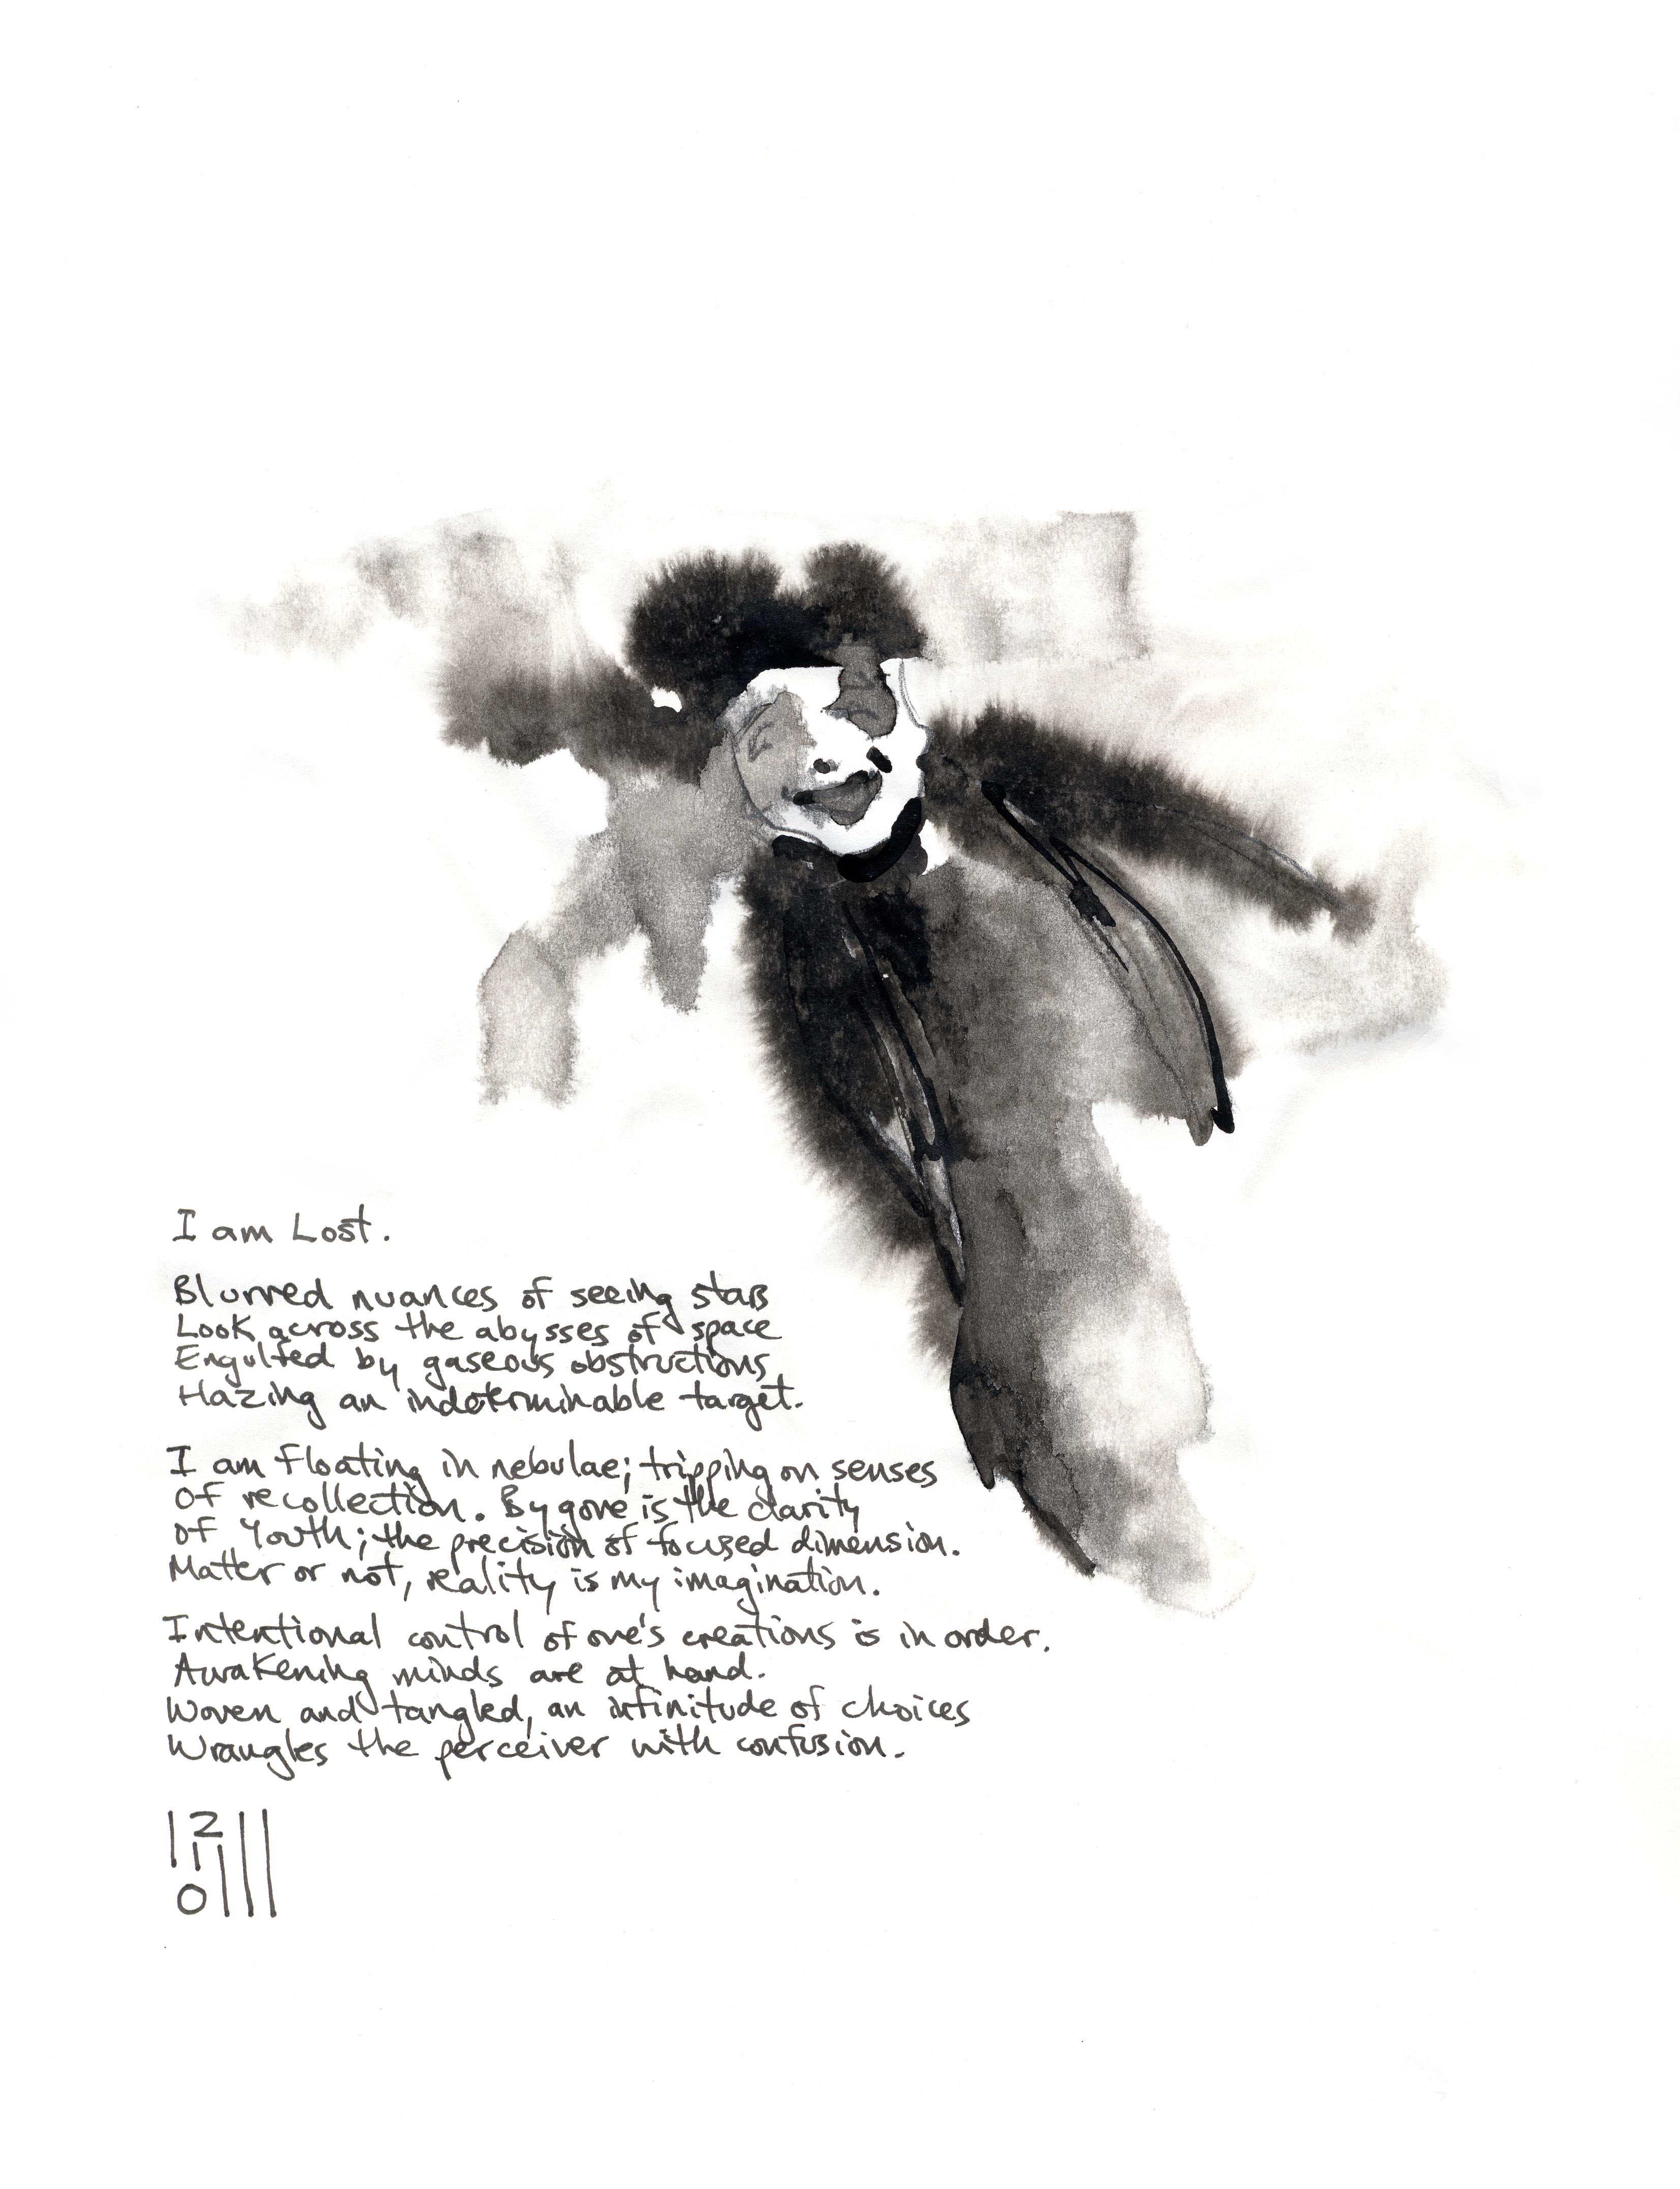 I am Lost.
Blurred nuances of seeing stars
Look across the abysses of space
Engulfed by gaseous obstructions
Hazing an indeterminable target.
I am floating in nebulae; tripping on senses
Of recollection. Bygone is the clarity
Of Youth; the precision of focused dimension.
Matter or not, reality is my imagination.
Intentional control of one's creations is in order.
Awakening minds are at hand.
Woven and tangled, an infinitude of choices
Wrangles the perceiver with confusion.